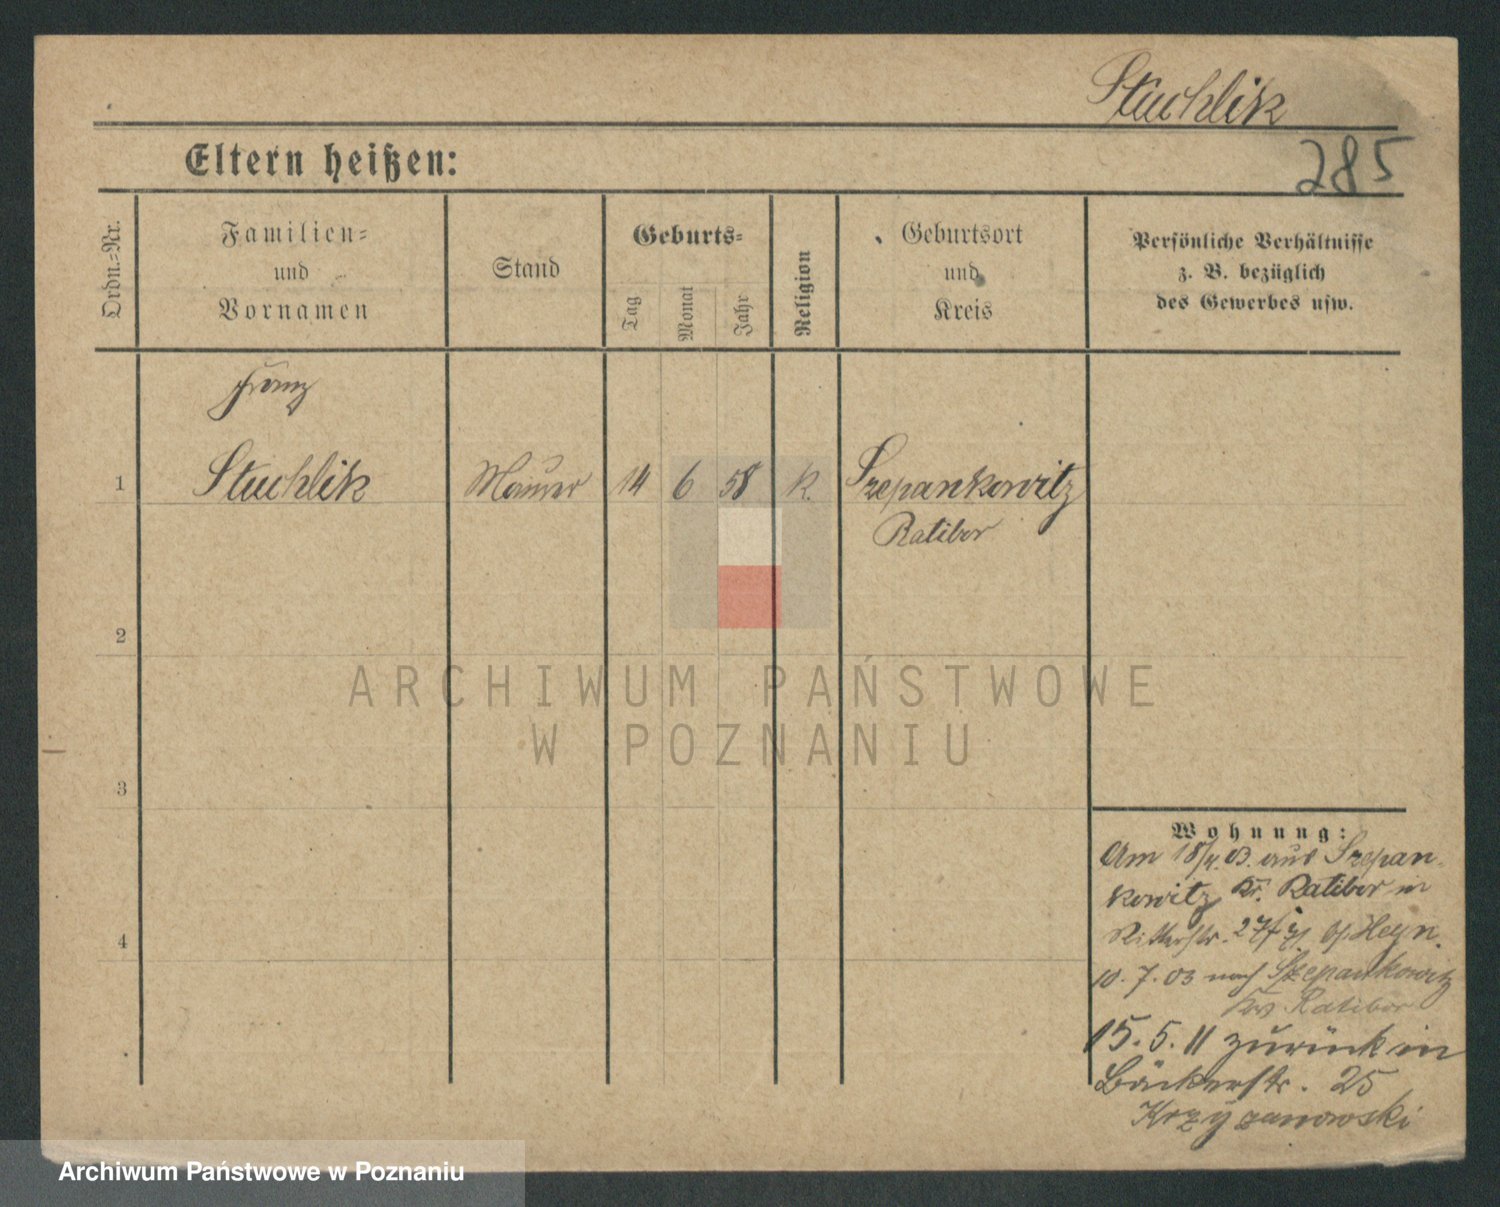 Stuchlik
Eltern heißen:
285
Ordn.-Nr.
Familien-
und
Vornamen
Stand
Geburts-
Tag
Monat
Jahr
Religion
Geburtsort
und
Kreis
Persönliche Verhältnisse
z. B. bezüglich
des Gewerbes usw.
Franz
1 Stuchlik Maurer 14 6 58 K. Szepankowitz
Ratibor
2
ARCHIWUM PAŃSTWOWE
W POZNANIU
3
4
Wohnung:
Am 18/4. 03. aus Szepan-
kowitz Kr. Ratibor in
Ritterstr. 27 Heyn.
10. 7. 03 nach Szepankowitz
Krs Ratibor
15. 5. 11 zurück in
Bäckerstr. 25
Krzyzanowski
Archiwum Państwowe w Poznaniu